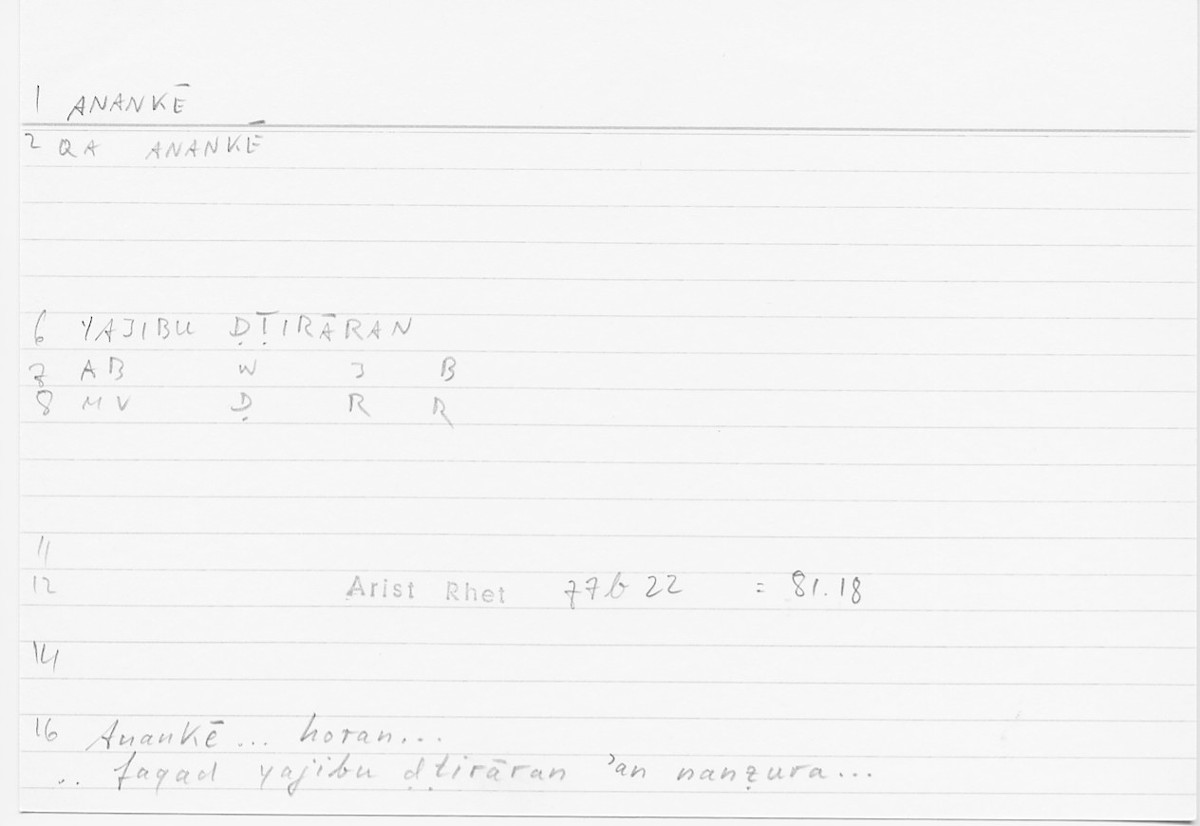 1 ANANKĒ
2 QA ANANKĒ
6 YAJIBU ḌṬIRĀRAN
7 AB W J B
8 MV Ḍ R R
11
12 Arist Rhet 77b 22 = 81.18
14
16 Anankē ... horan...
.. faqad yajibu ḍṭirāran ʾan nanẓura...